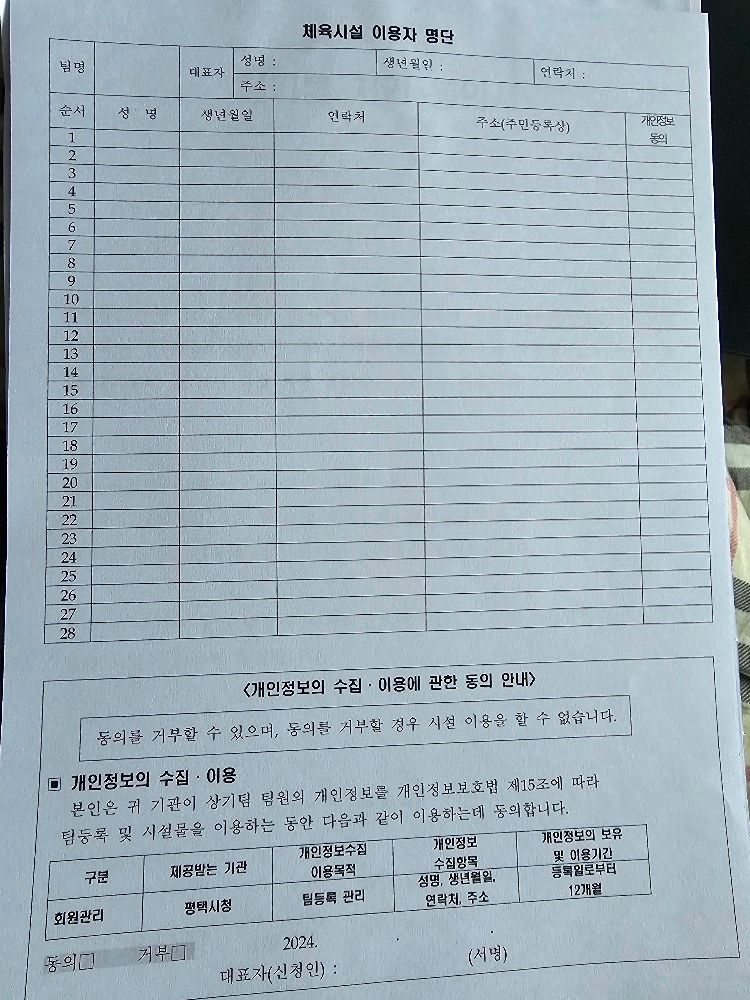 체육시설 이용자 명단
팀명 대표자 성명 : 생년월일 : 연락처 :
주소 :
순서 성 명 생년월일 연락처 주소(주민등록상) 개인정보
동의
1
2
3
4
5
6
7
8
9
10
11
12
13
14
15
16
17
18
19
20
21
22
23
24
25
26
27
28
<개인정보의 수집 · 이용에 관한 동의 안내>
동의를 거부할 수 있으며, 동의를 거부할 경우 시설 이용을 할 수 없습니다.
▣ 개인정보의 수집 · 이용
본인은 귀 기관이 상기팀 팀원의 개인정보를 개인정보보호법 제15조에 따라
팀등록 및 시설물을 이용하는 동안 다음과 같이 이용하는데 동의합니다.
구분 제공받는 기관 개인정보수집 개인정보 개인정보의 보유
이용목적 수집항목 및 이용기간
회원관리 평택시청 팀등록 관리 성명, 생년월일, 등록일로부터
연락처, 주소 12개월
동의□ 거부□ 2024. . .
대표자(신청인) : (서명)